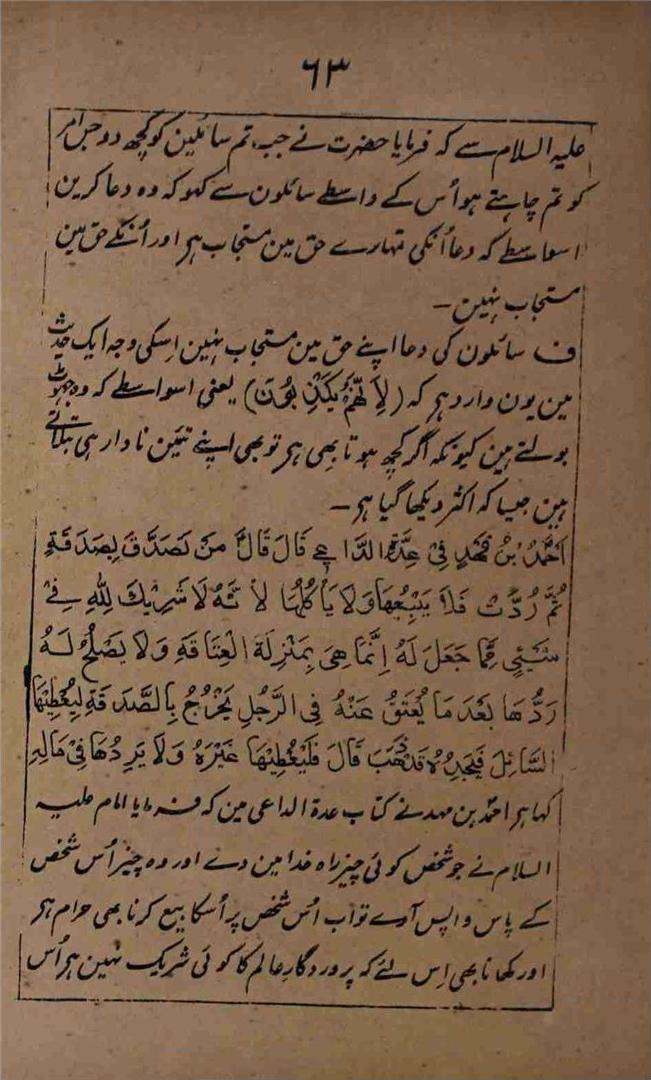 ۶۳
علیہ السلام سے کہ فرمایا حضرت نے جب تم سائلین کو کچھ دو جس امر
کو تم چاہتے ہو اُس کے واسطے سائلون سے کہو کہ وہ دعا کرین
اسواسطے کہ دعا اُنکی تمہارے حق مین مستجاب ہر اور اُنکے حق مین
مستجاب نہین۔
ف سائلون کی دعا اپنے حق مین مستجاب نہین اِسکی وجہ ایک حدیث
مین یون وارد ہر کہ (لِاَنَّهُمْ يَكْذِبُوْنَ) یعنی اسواسطے کہ وہ جھوٹ
بولتے ہین کیونکہ اگر کچھ ہوتا بھی ہر تو بھی اپنے تئین نادار ہی بتلاتے
ہین جیسا کہ اکثر دیکھا گیا ہر۔
اَحْمَدُ بْنُ فَهْدٍ فِيْ عِدَّةِ الدَّاعِيْ قَالَ قَالَ مَنْ تَصَدَّقَ بِصَدَقَةٍ
ثُمَّ رُدَّتْ فَلَا يَبِيْعُهَا وَلَا يَاْكُلُهَا لِاَنَّهُ لَا شَرِيْكَ لِلّٰهِ فِيْ
شَيْئٍ مِّمَّا جَعَلَ لَهُ اِنَّمَا هِيَ بِمَنْزِلَةِ الْعِتَاقَةِ وَلَا يَصْلُحُ لَهُ
رَدُّهَا بَعْدَ مَا يُعْتَقُ عَنْهُ فِي الرَّجُلِ يَخْرُجُ بِالصَّدَقَةِ لِيُعْطِيَهَا
السَّائِلَ فَيَجِدُهُ قَدْ ذَهَبَ قَالَ فَلْيُعْطِيْهَا غَيْرَهُ وَلَا يَرُدُّهَا فِيْ مَالِهِ
کہا ہر احمد بن مہد نے کتاب عدۃ الداعی مین کہ فرمایا امام علیہ
السلام نے جو شخص کوئی چیز راہ خدا مین دے اور وہ چیز اُس شخص
کے پاس واپس آوے تو اب اُس شخص پر اُسکا بیع کرنا بھی حرام ہر
اور کھانا بھی اِس لئے کہ پروردگار عالم کا کوئی شریک نہین ہر اُس